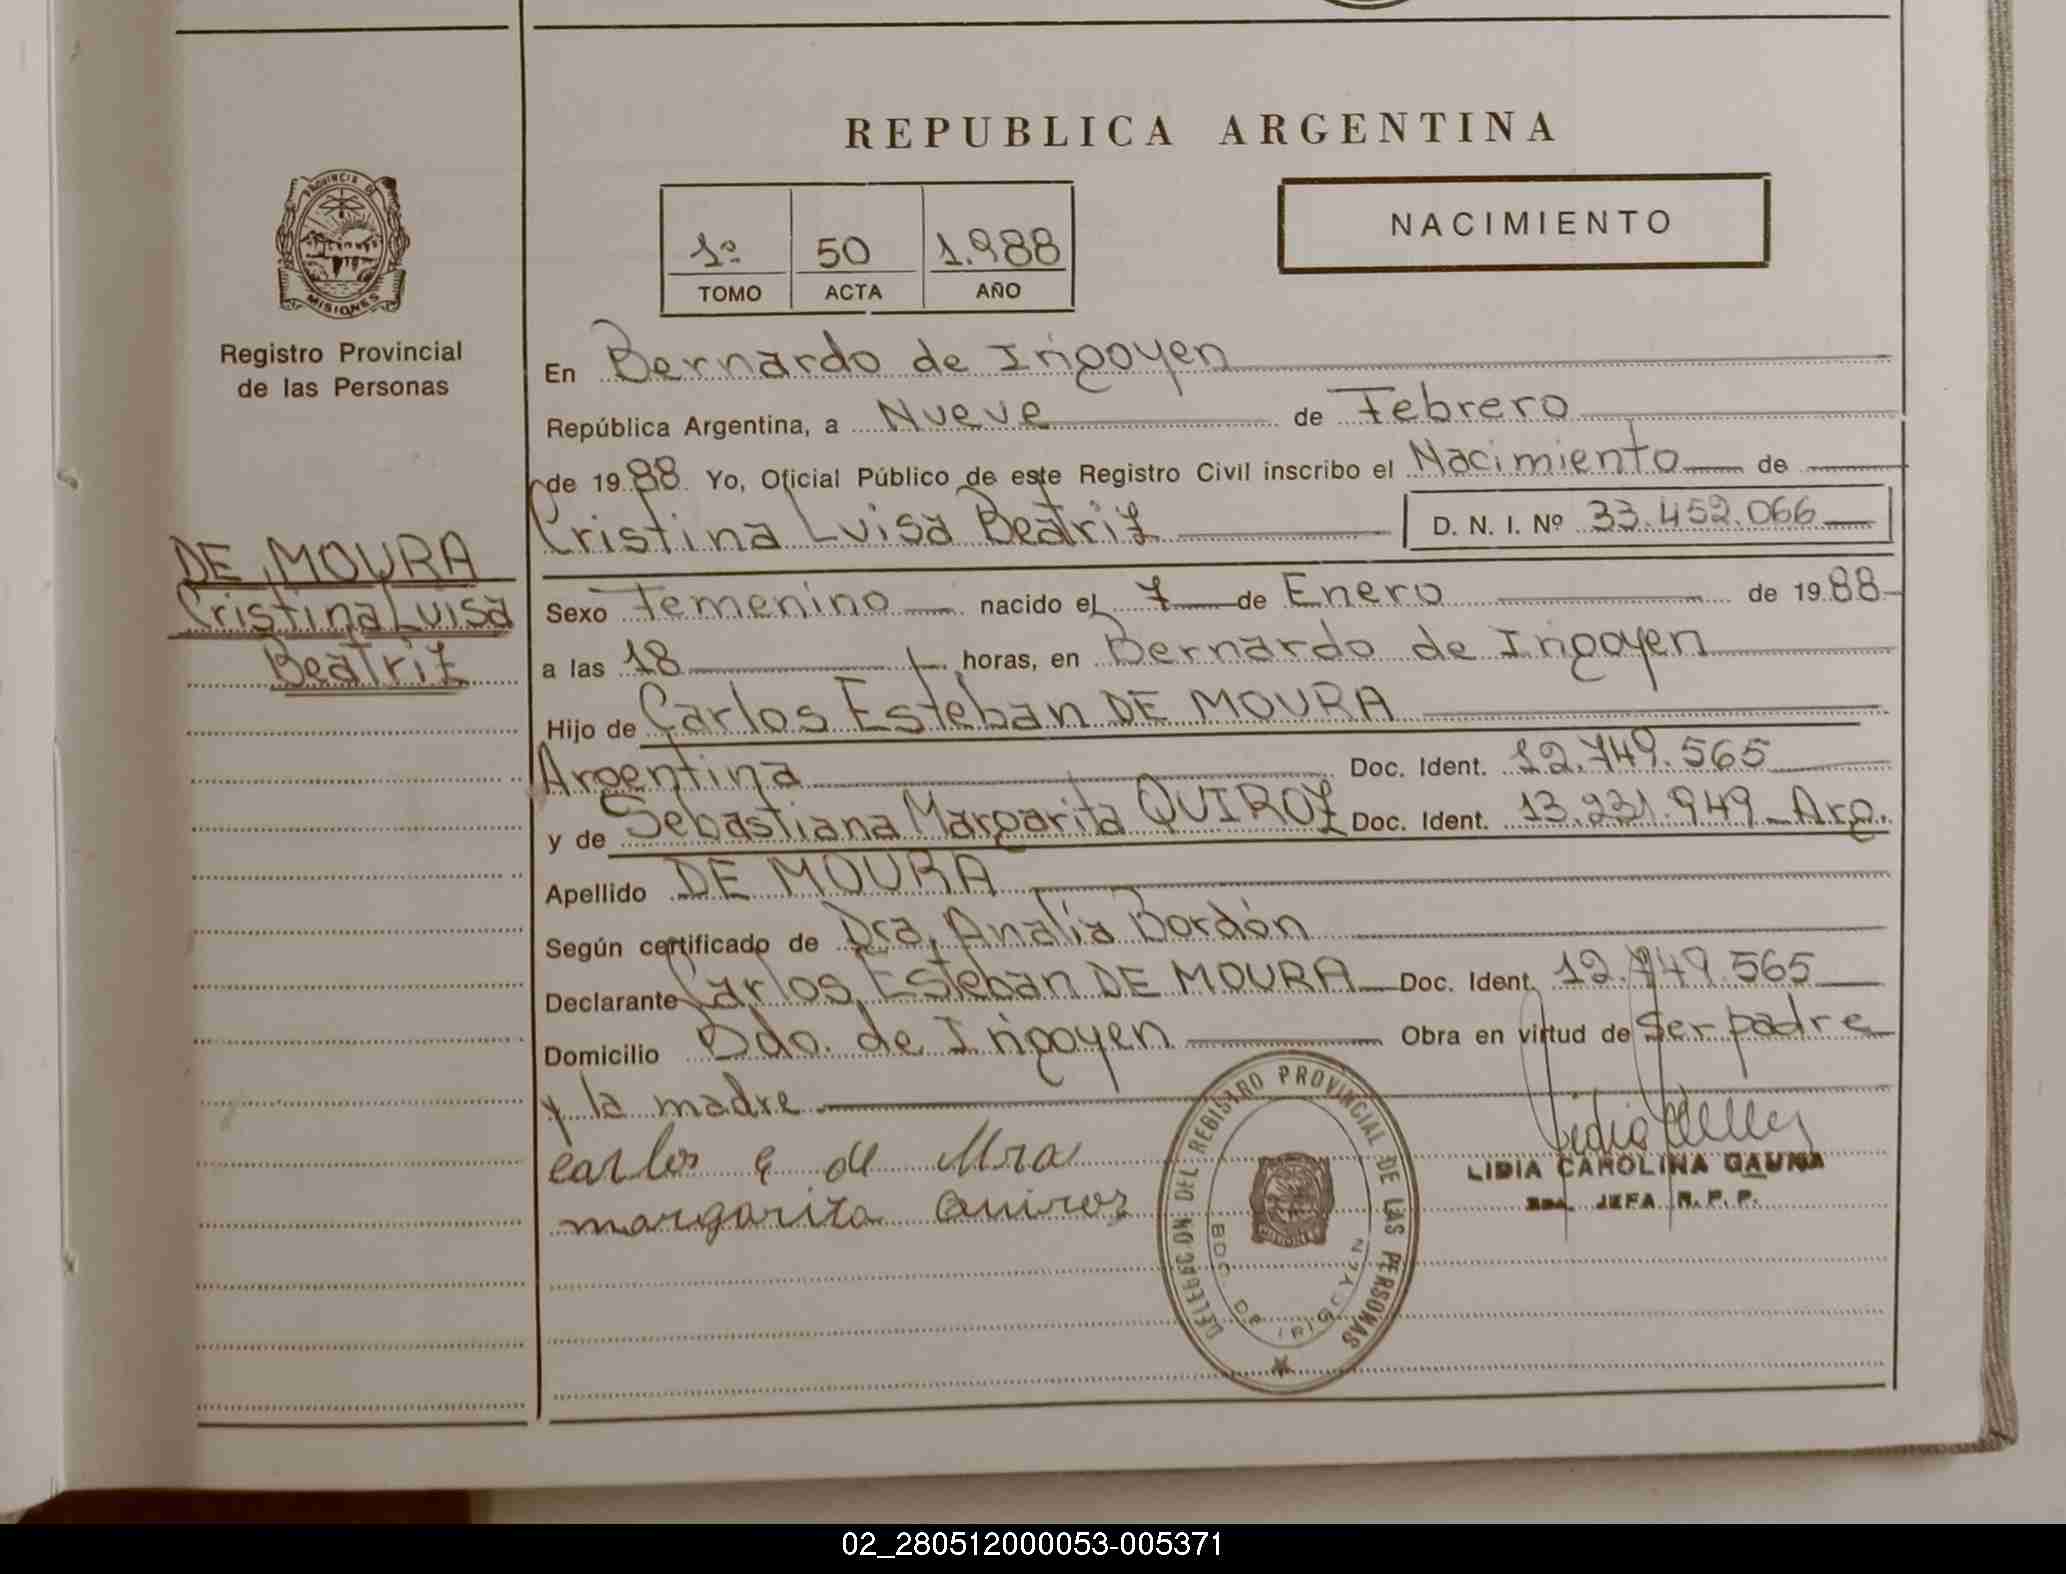 REPUBLICA ARGENTINA
NACIMIENTO
1º 50 1.988
TOMO ACTA AÑO
PROVINCIA DE
MISIONES
Registro Provincial
de las Personas
DE MOURA
Cristina Luisa
Beatriz
En Bernardo de Irigoyen
República Argentina, a Nueve de Febrero
de 1988 Yo, Oficial Público de este Registro Civil inscribo el Nacimiento de
Cristina Luisa Beatriz D. N. I. Nº 33.452.066
Sexo Femenino nacido el 7 de Enero de 1988
a las 18 horas, en Bernardo de Irigoyen
Hijo de Carlos Esteban DE MOURA
Argentina Doc. Ident. 12.749.565
y de Sebastiana Margarita QUIROZ Doc. Ident. 13.231.949 Arg.
Apellido DE MOURA
Según certificado de Dra. Analía Bordón
Declarante Carlos Esteban DE MOURA Doc. Ident. 12.749.565
Domicilio Bdo. de Irigoyen Obra en virtud de Ser padre
y la madre
carlos e de Mra
margarita Quiroz
LIDIA CAROLINA GAUNA
JEFA R. P. P.
DELEGACION DEL REGISTRO PROVINCIAL DE LAS PERSONAS
BDO. DE IRIGOYEN
MISIONES
02_280512000053-005371